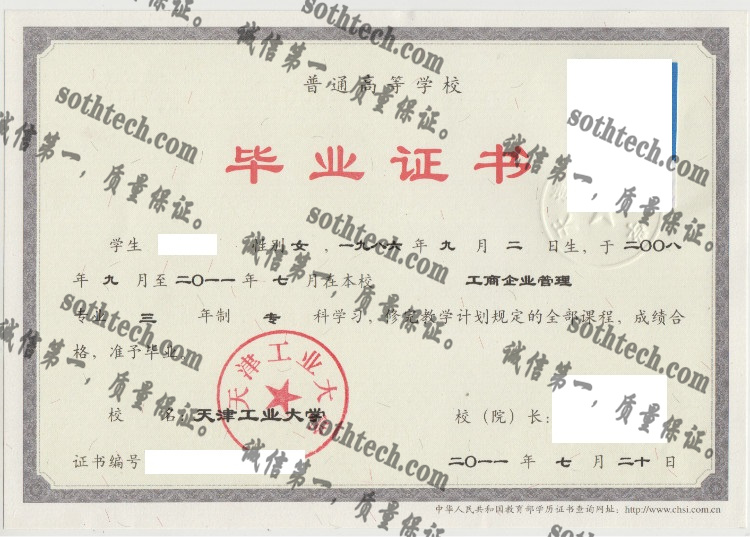 普通高等学校
毕业证书
学生 性别 女 , 一九八六 年 九 月 二 日生, 于 二〇〇八
年 九 月至 二〇一一 年 七 月在本校 工商企业管理
专业 三 年制 专 科学习, 修完教学计划规定的全部课程, 成绩合
格, 准予毕业。
校 名: 天津工业大学
校（院）长:
天津工业大学
证书编号
二〇一一 年 七 月 二十 日
中华人民共和国教育部学历证书查询网址: http://www.chsi.com.cn
sothtech.com
诚信第一,质量保证。
sothtech.com
诚信第一,质量保证。
sothtech.com
诚信第一,质量保证。
sothtech.com
诚信第一,质量保证。
sothtech.com
诚信第一,质量保证。
sothtech.com
诚信第一,质量保证。
sothtech.com
诚信第一,质量保证。